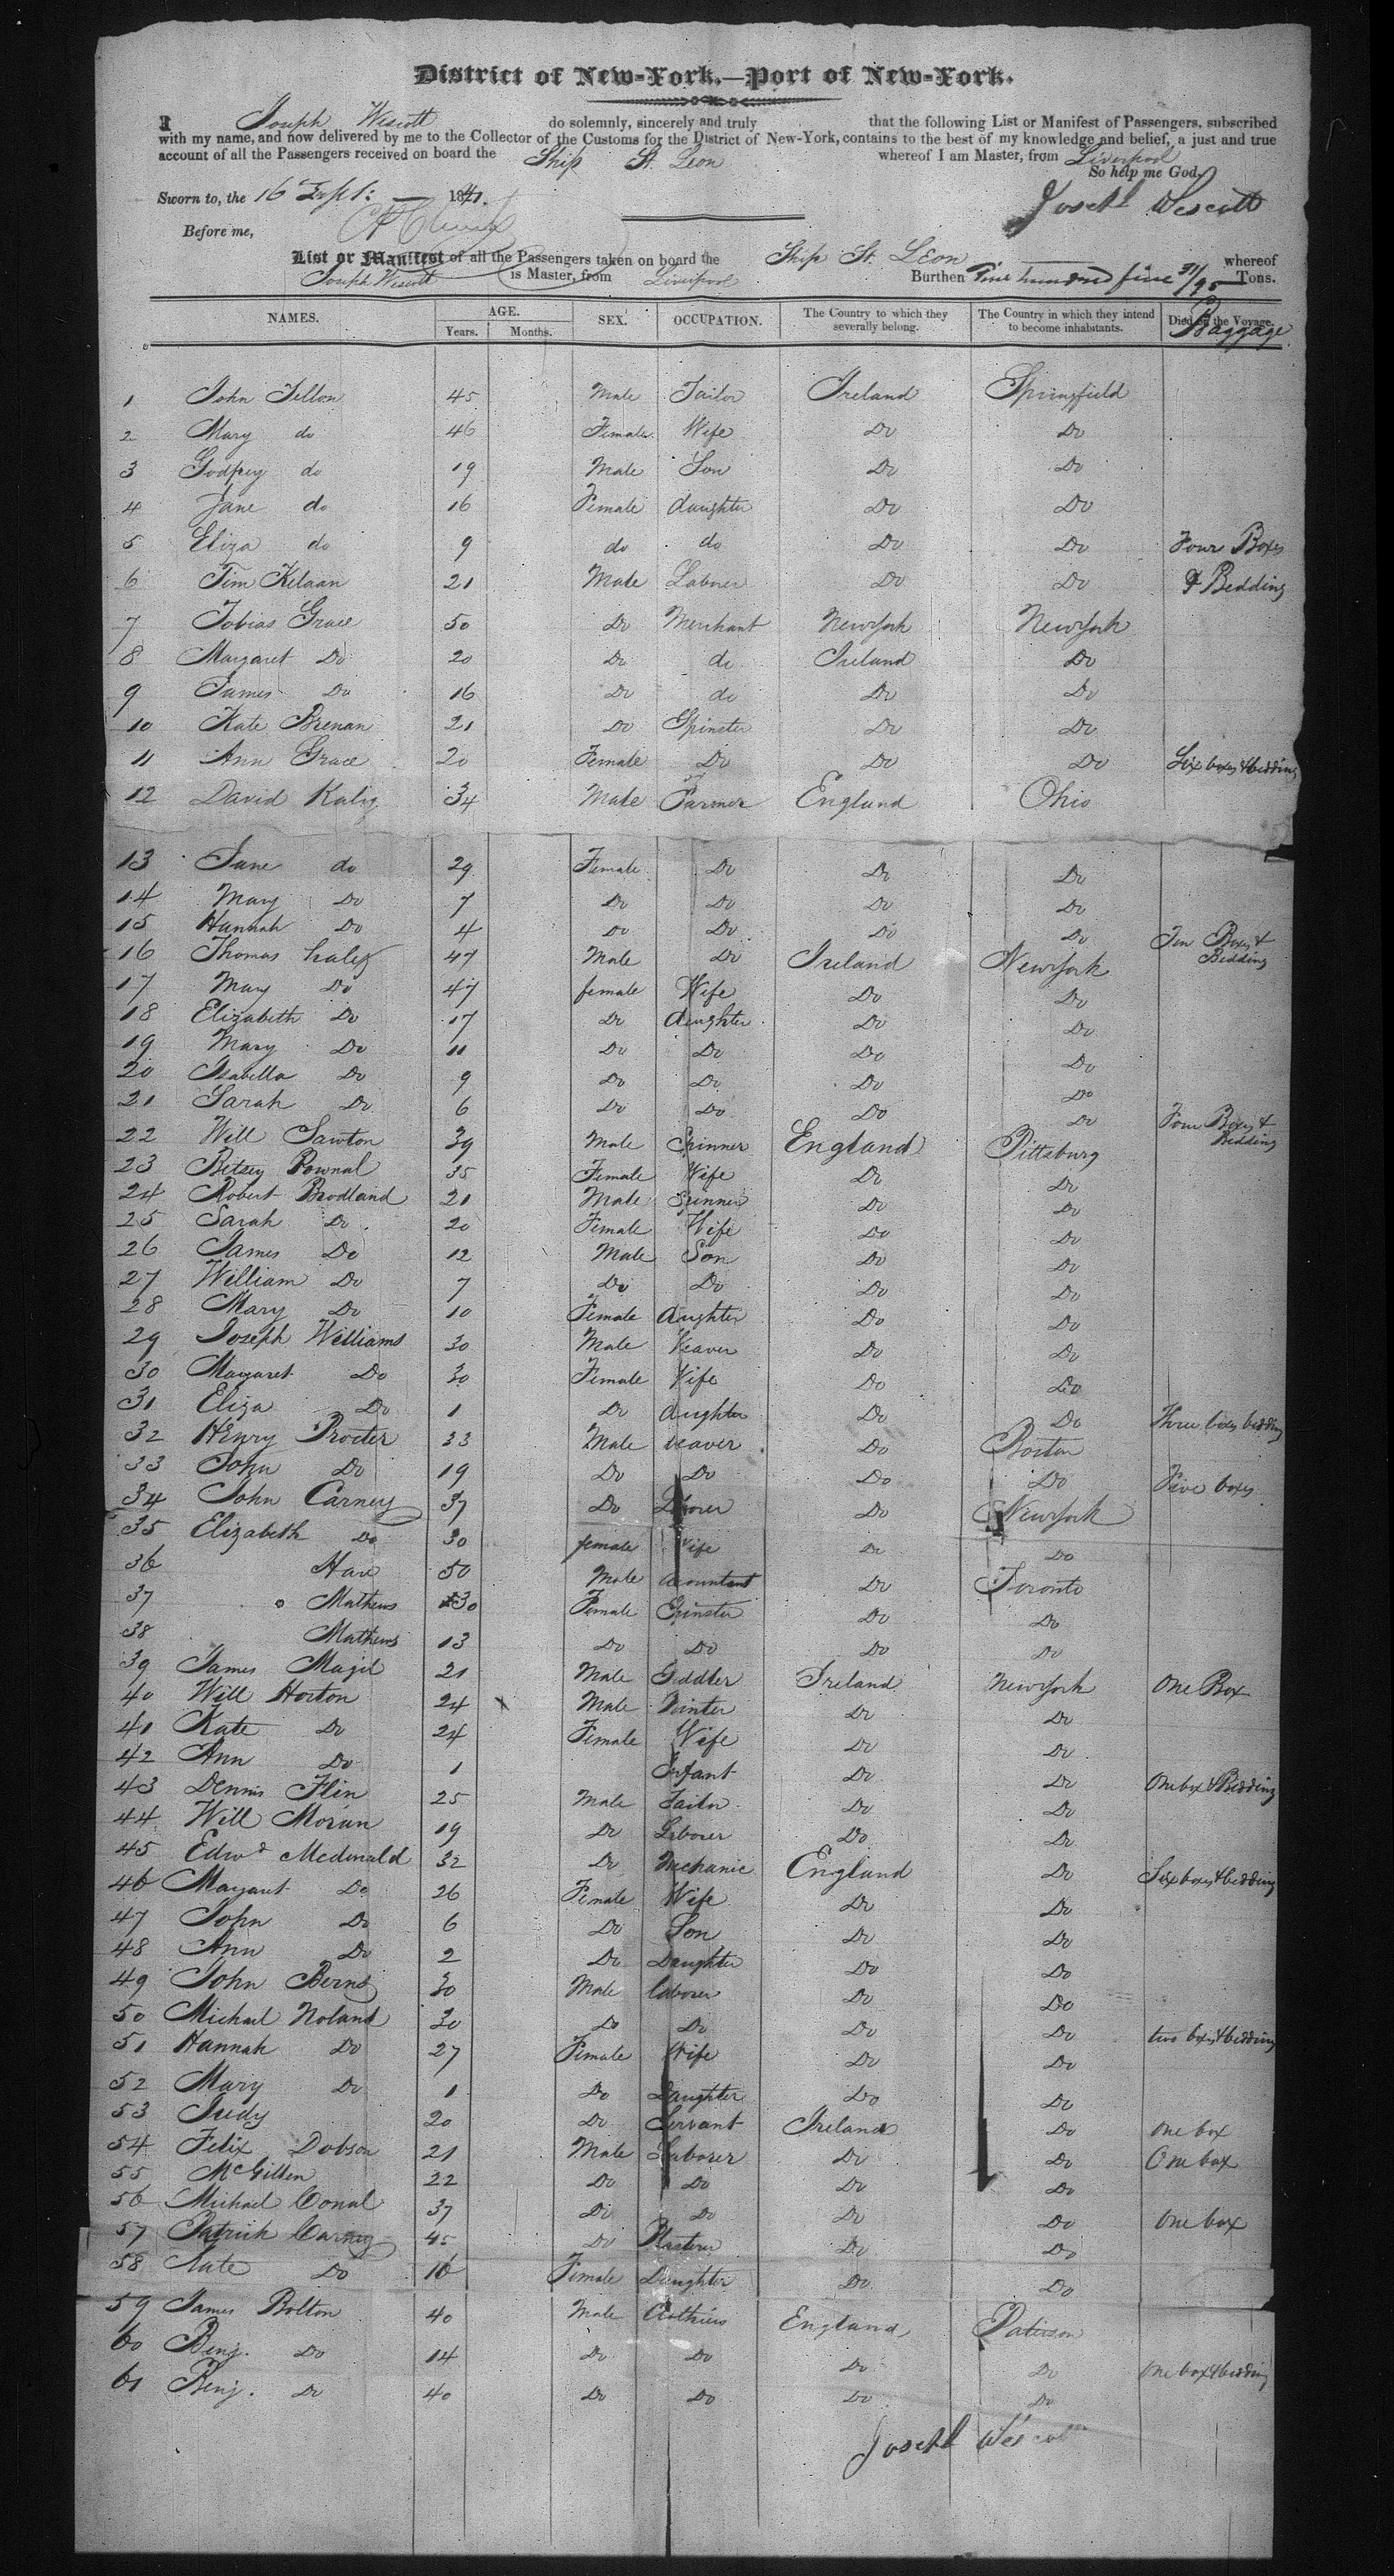 District of New-York.—Port of New-York.
I Joseph Wescott do solemnly, sincerely and truly that the following List or Manifest of Passengers, subscribed
with my name, and now delivered by me to the Collector of the Customs for the District of New-York, contains to the best of my knowledge and belief, a just and true
account of all the Passengers received on board the Ship St. Leon whereof I am Master, from Liverpool
So help me God.
Sworn to, the 16 Sept: 1841. Joseph Wescott
Before me,
List or Manifest of all the Passengers taken on board the Ship St. Leon whereof
Joseph Wescott is Master, from Liverpool Burthen five hundred five 91/95 Tons.
NAMES. AGE. SEX. OCCUPATION. The Country to which they severally belong. The Country in which they intend to become inhabitants. Died on the Voyage. Baggage
Years. Months.
1 John 45 Male Tailor Ireland Springfield
2 Mary do 46 Female Wife Do Do
3 Godfrey do 19 Male Son Do Do
4 Jane do 16 Female daughter Do Do
5 Eliza do 9 do do Do Do Four Boxes
6 Tim Kelaan 21 Male Laborer Do Do & Bedding
7 Tobias Grace 50 Do Merchant New York New York
8 Margaret Do 20 Do do Ireland Do
9 James Do 16 Do do Do Do
10 Kate Brenan 21 Do Spinster Do Do
11 Ann Grace 20 Female Do Do Do Six boxes & bedding
12 David 34 Male Farmer England Ohio
13 Jane do 29 Female Do Do Do
14 Mary Do 7 Do Do Do Do
15 Hannah Do 4 Do Do Do Do Ten Boxes & Bedding
16 Thomas 47 Male Do Ireland New York
17 Mary Do 47 female Wife Do Do
18 Elizabeth Do 17 Do daughter Do Do
19 Mary Do 11 Do Do Do Do
20 Isabella Do 9 Do Do Do Do
21 Sarah Do 6 Do Do Do Do Four Boxes & Bedding
22 Will Sawton 39 Male Spinner England Pittsburg
23 Betsey Pownal 35 Female Wife Do Do
24 Robert Brodland 21 Male Spinner Do Do
25 Sarah Do 20 Female Wife Do Do
26 James Do 12 Male Son Do Do
27 William Do 7 Do Do Do Do
28 Mary Do 10 Female daughter Do Do
29 Joseph Williams 30 Male Weaver Do Do
30 Margaret Do 30 Female Wife Do Do
31 Eliza Do 1 Do daughter Do Do Three boxes bedding
32 Henry Procter 33 Male weaver Do Boston
33 John Do 19 Do Do Do Do Five boxes
34 John Carney 37 Do Laborer Do New York
35 Elizabeth Do 30 female Wife Do Do
36 Hare 50 Male accountant Do Toronto
37 Mathews 30 Female Spinster Do Do
38 Mathews 13 Do Do Do Do
39 James Magil 21 Male Ireland New York One Box
40 Will Horton 24 Male Do Do
41 Kate Do 24 Female Wife Do Do
42 Ann Do 1 Infant Do Do One box & Bedding
43 Dennis Flin 25 Male Tailor Do Do
44 Will Moran 19 Do Laborer Do Do
45 Edwd Mcdonald 32 Do Mechanic England Do Six boxes & bedding
46 Margaret Do 26 Female Wife Do Do
47 John Do 6 Do Son Do Do
48 Ann Do 2 Do Daughter Do Do
49 John Berns 30 Male laborer Do Do
50 Michael Noland 30 Do Do Do Do two boxes & bedding
51 Hannah Do 27 Female Wife Do Do
52 Mary Do 1 Do Daughter Do Do
53 Judy 20 Do Servant Ireland Do One box
54 Felix Dobson 21 Male Laborer Do Do One box
55 McGillen 22 Do Do Do Do
56 Michael Conal 37 Do Do Do Do One box
57 Patrick Carney 45 Do Plasterer Do Do
58 Kate Do 16 Female Daughter Do Do
59 James Bolton 40 Male Clothier England Paterson
60 Benj. Do 14 Do Do Do Do One box & bedding
61 Benj. Do 40 Do Do Do Do
Joseph Wescott